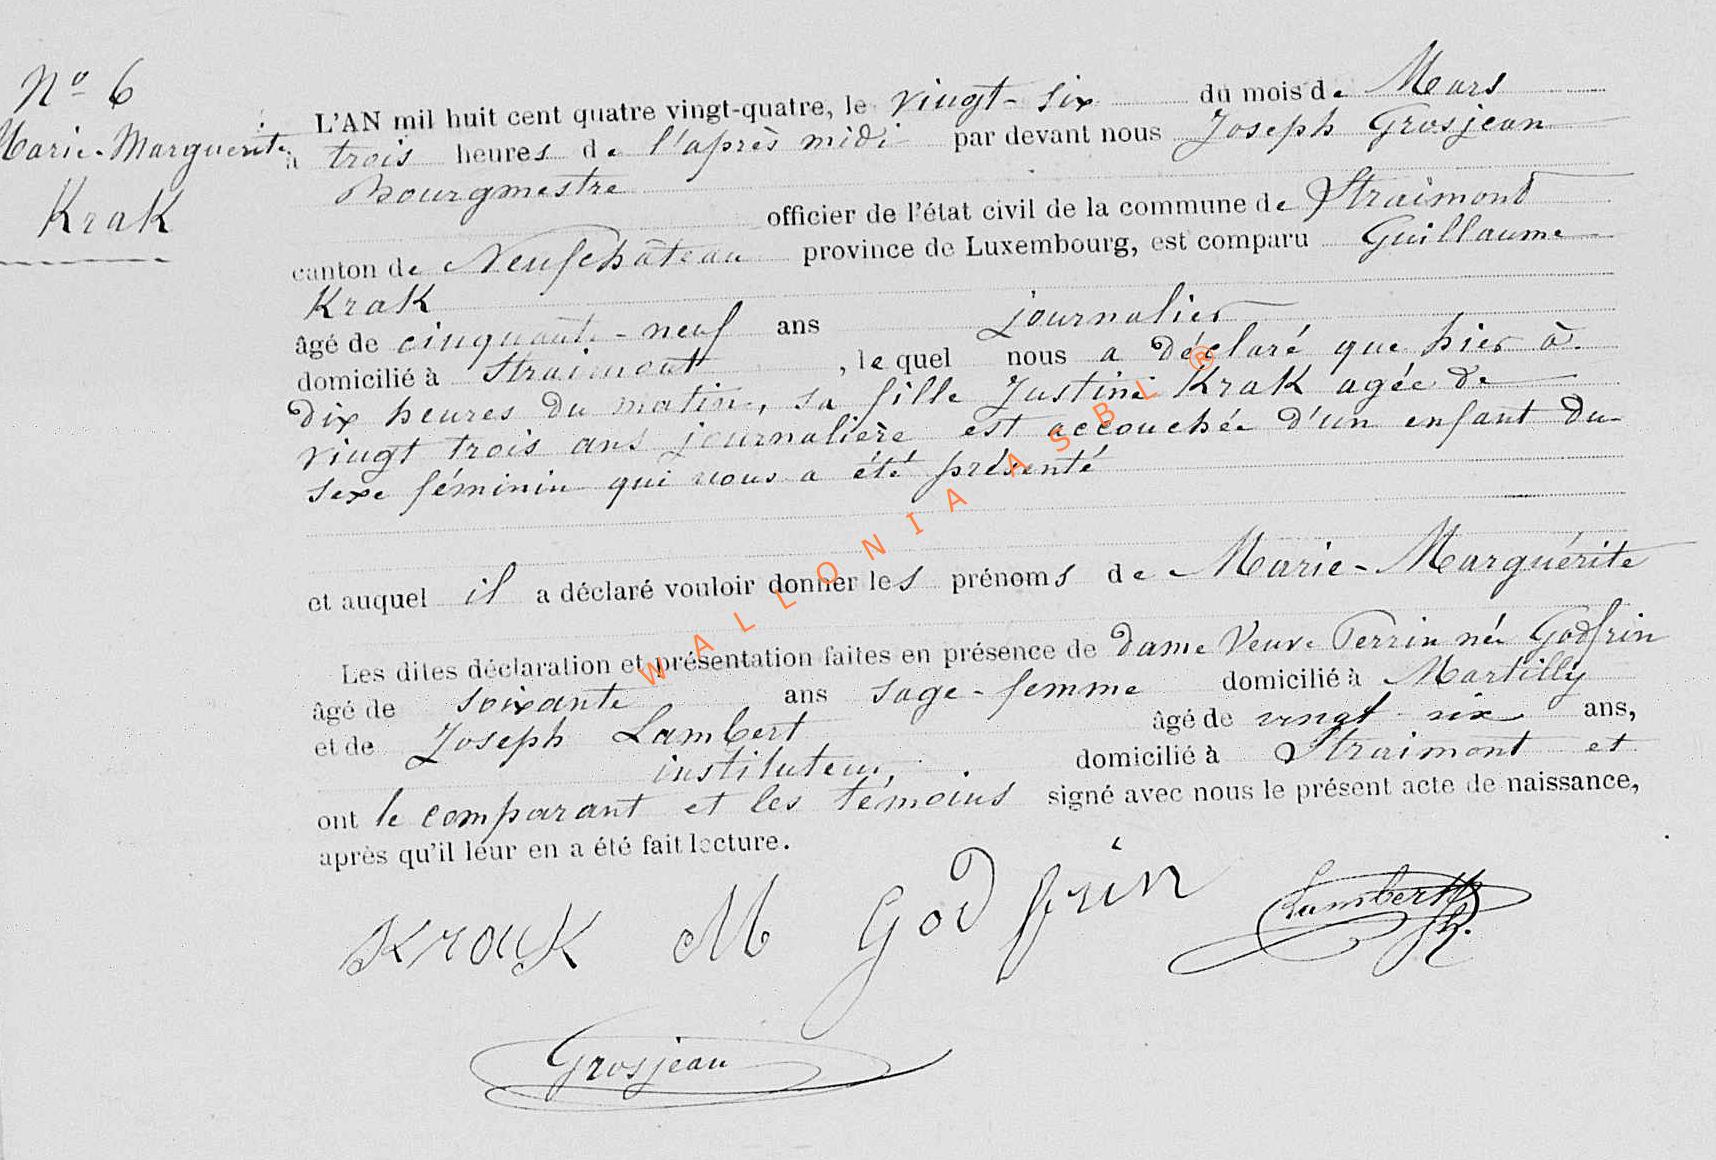 Nº 6
Marie-Marguerite
Krak
L'AN mil huit cent quatre vingt-quatre, le vingt-six du mois de Mars
à trois heures de l'après midi par devant nous Joseph Grosjean
Bourgmestre
officier de l'état civil de la commune de Straimont
canton de Neufchâteau province de Luxembourg, est comparu Guillaume
Krak
âgé de cinquante-neuf ans journalier
domicilié à Straimont, le quel nous a déclaré que hier à
dix heures du matin, sa fille Justine Krak agée de
vingt trois ans journalière est accouchée d'un enfant du
sexe féminin qui nous a été présenté
et auquel il a déclaré vouloir donner les prénoms de Marie-Marguérite
Les dites déclaration et présentation faites en présence de dame Veuve Perrin née Godfrin
âgé de soixante ans sage-femme domicilié à Martilly
et de Joseph Lambert âgé de vingt-six ans,
instituteur, domicilié à Straimont et
ont le comparant et les témoins signé avec nous le présent acte de naissance,
après qu'il leur en a été fait lecture.
Krak M Godfrin Lambert
Grosjean
WALLONIA ASBL ®